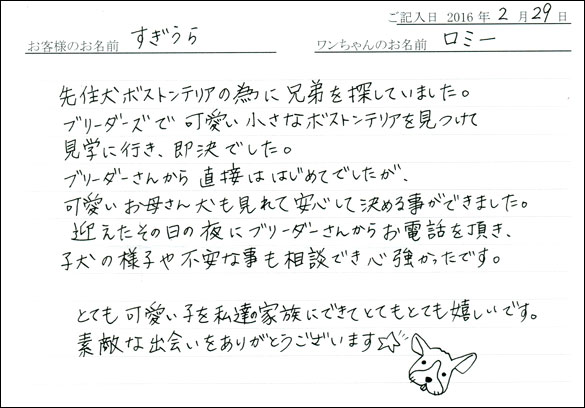 ご記入日 2016 年 2 月 29 日
お客様のお名前 すぎうら ワンちゃんのお名前 ロミー
先住犬ボストンテリアの為に兄弟を探していました。
ブリーダーズで可愛い小さなボストンテリアを見つけて
見学に行き、即決でした。
ブリーダーさんから直接ははじめてでしたが、
可愛いお母さん犬も見れて安心して決める事ができました。
迎えたその日の夜にブリーダーさんからお電話を頂き、
子犬の様子や不安な事も相談でき心強かったです。
とても可愛い子を私達家族にできてとてもとても嬉しいです。
素敵な出会いをありがとうございます☆